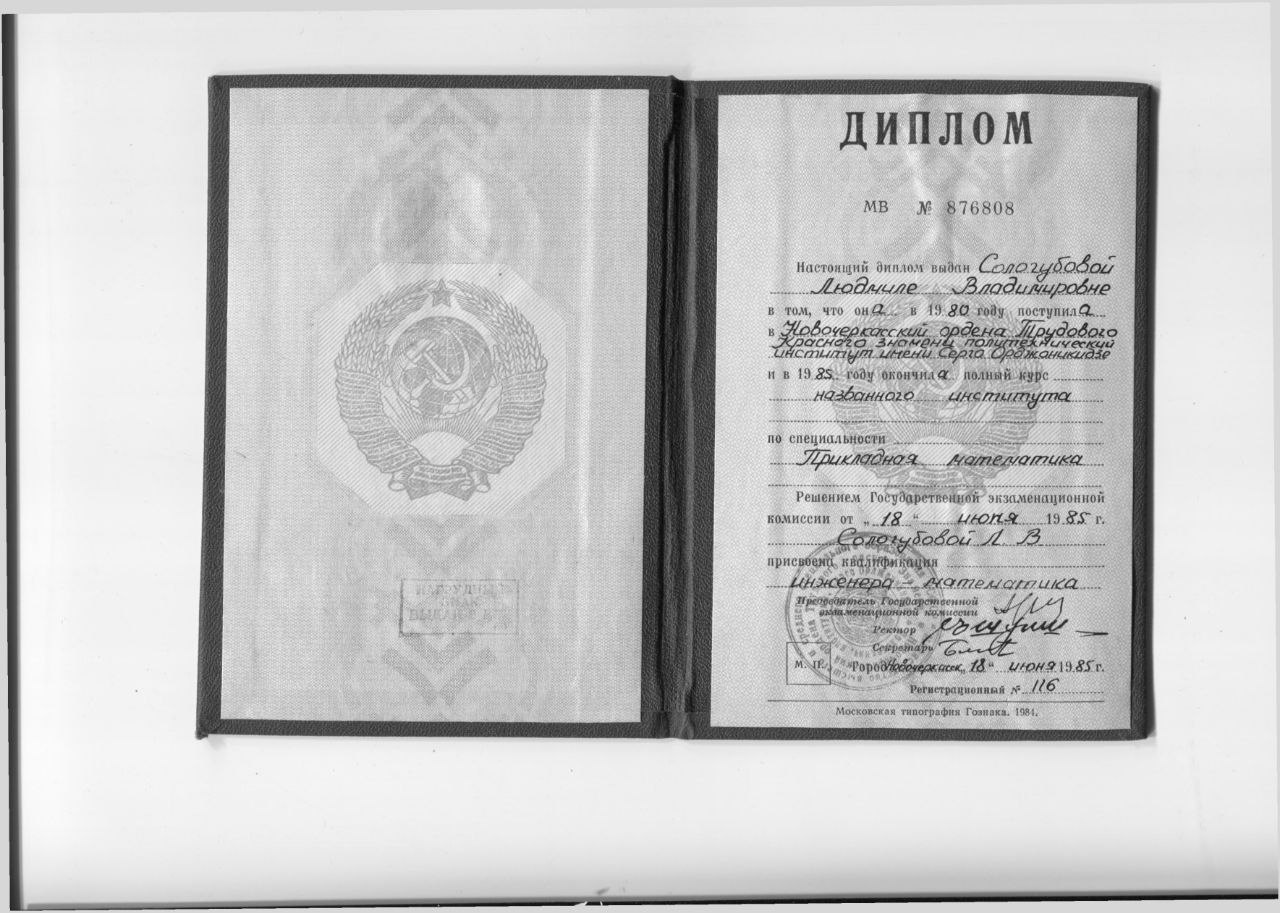 НАГРУДНЫЙ
ЗНАК
ВЫДАН
ДИПЛОМ
МВ № 876808
Настоящий диплом выдан Сологубовой
Людмиле Владимировне
в том, что она в 1980 году поступила
в Новочеркасский ордена Трудового
Красного знамени политехнический
институт имени Серго Орджоникидзе
и в 1985 году окончила полный курс
названного института
по специальности
Прикладная математика
Решением Государственной экзаменационной
комиссии от „18“ июня 1985 г.
Сологубовой Л. В
присвоена квалификация
инженера - математика
Председатель Государственной
экзаменационной комиссии
Ректор
Секретарь
М. П. Город Новочеркасск „18“ июня 1985 г.
Регистрационный № 116
Московская типография Гознака. 1984.